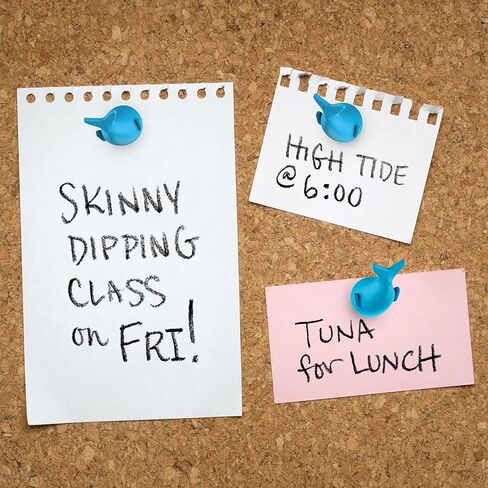 SKINNY
DIPPING
CLASS
on FRI!
HIGH TIDE
@ 6:00
TUNA
for LUNCH